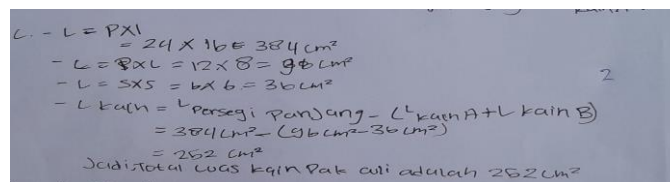 C. - L = PXl
= 24 X 16 = 384 cm²
- L = PXL = 12 X 8 = 96 cm²
- L = SXS = 6X6 = 36 cm²
2
- L kain = L persegi panjang - (L kain A + L kain B)
= 384 cm² - (96 cm² - 36 cm²)
= 252 cm²
Jadi, Total luas kain Pak adalah 252 cm²